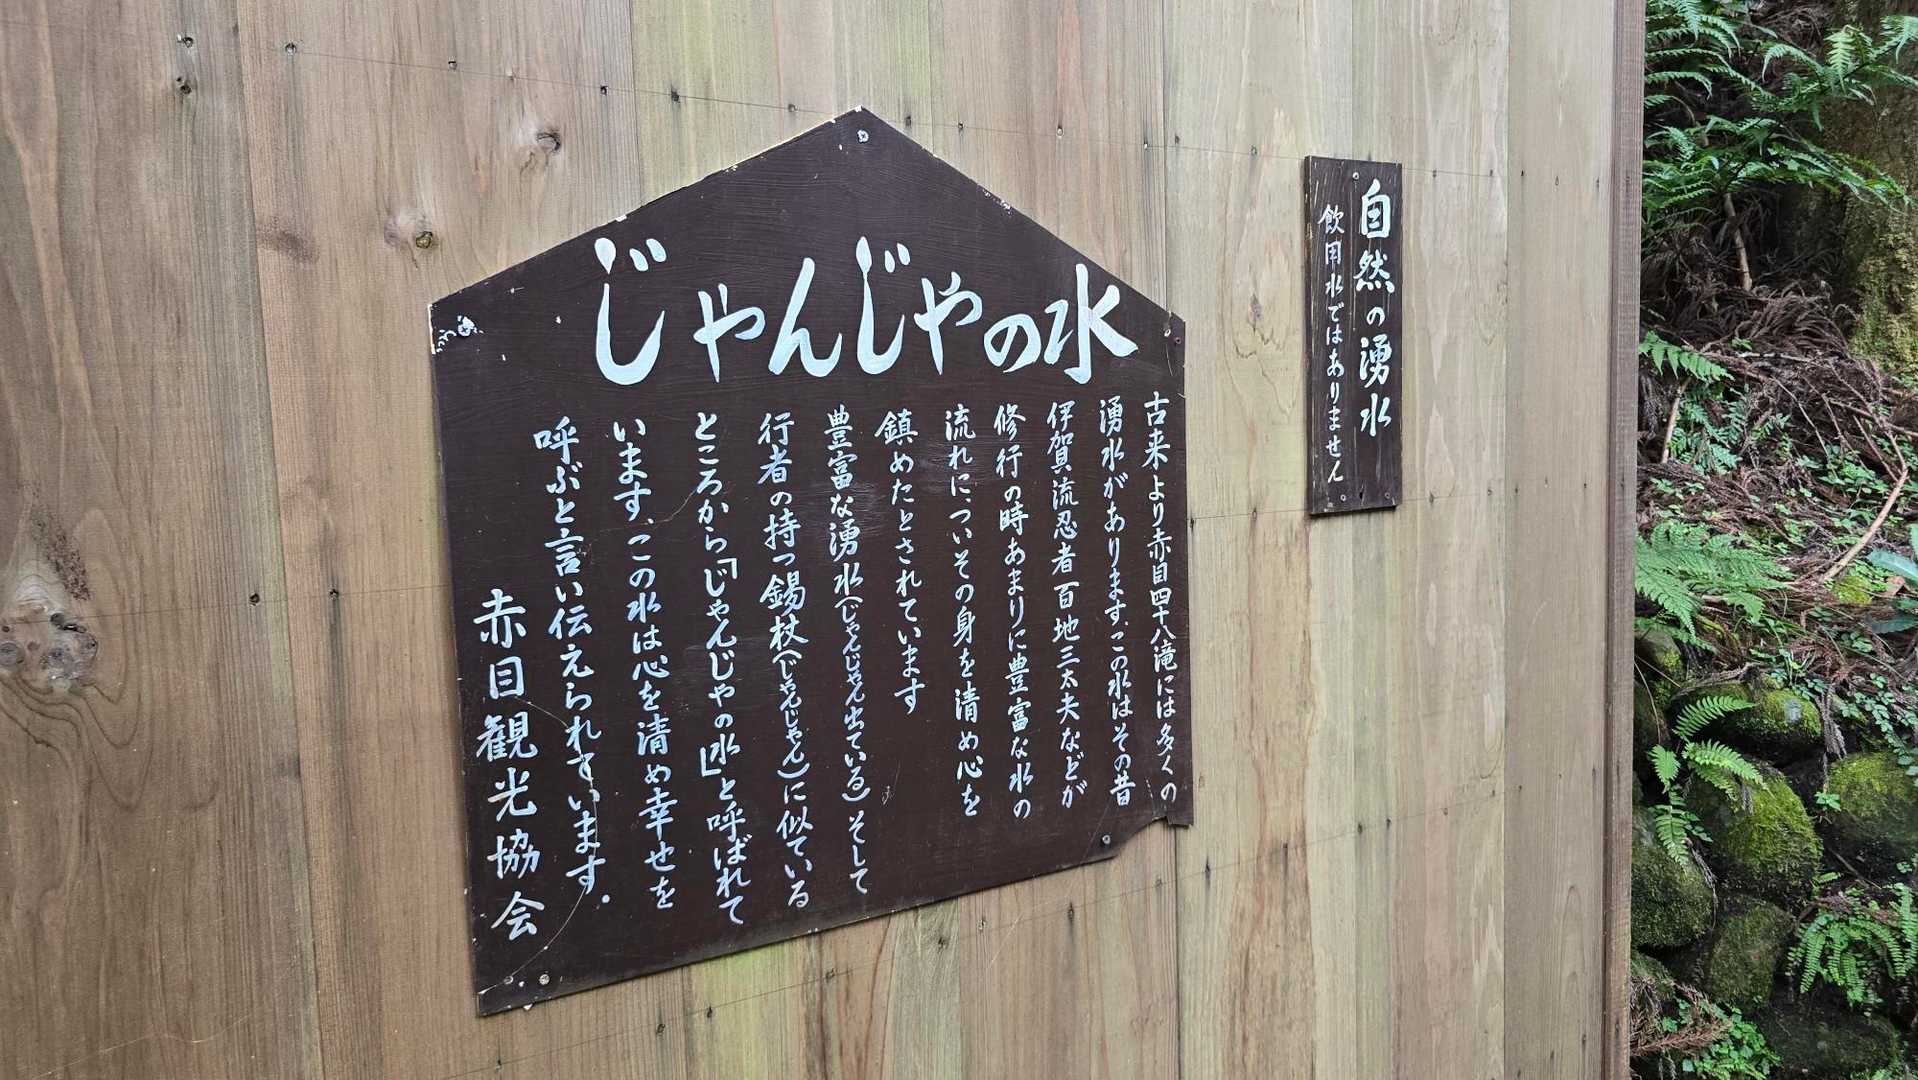 じゃんじゃの水
古来より赤目四十八滝には多くの
湧水があります。この水はその昔
伊賀流忍者百地三太夫などが
修行の時あまりに豊富な水の
流れについその身を清め心を
鎮めたとされています
豊富な湧水(じゃんじゃん出ている)そして
行者の持つ錫杖(じゃんじゃん)に似ている
ところから「じゃんじゃの水」と呼ばれて
います、この水は心を清め幸せを
呼ぶと言い伝えられています.
赤目観光協会
自然の湧水
飲用水ではありません